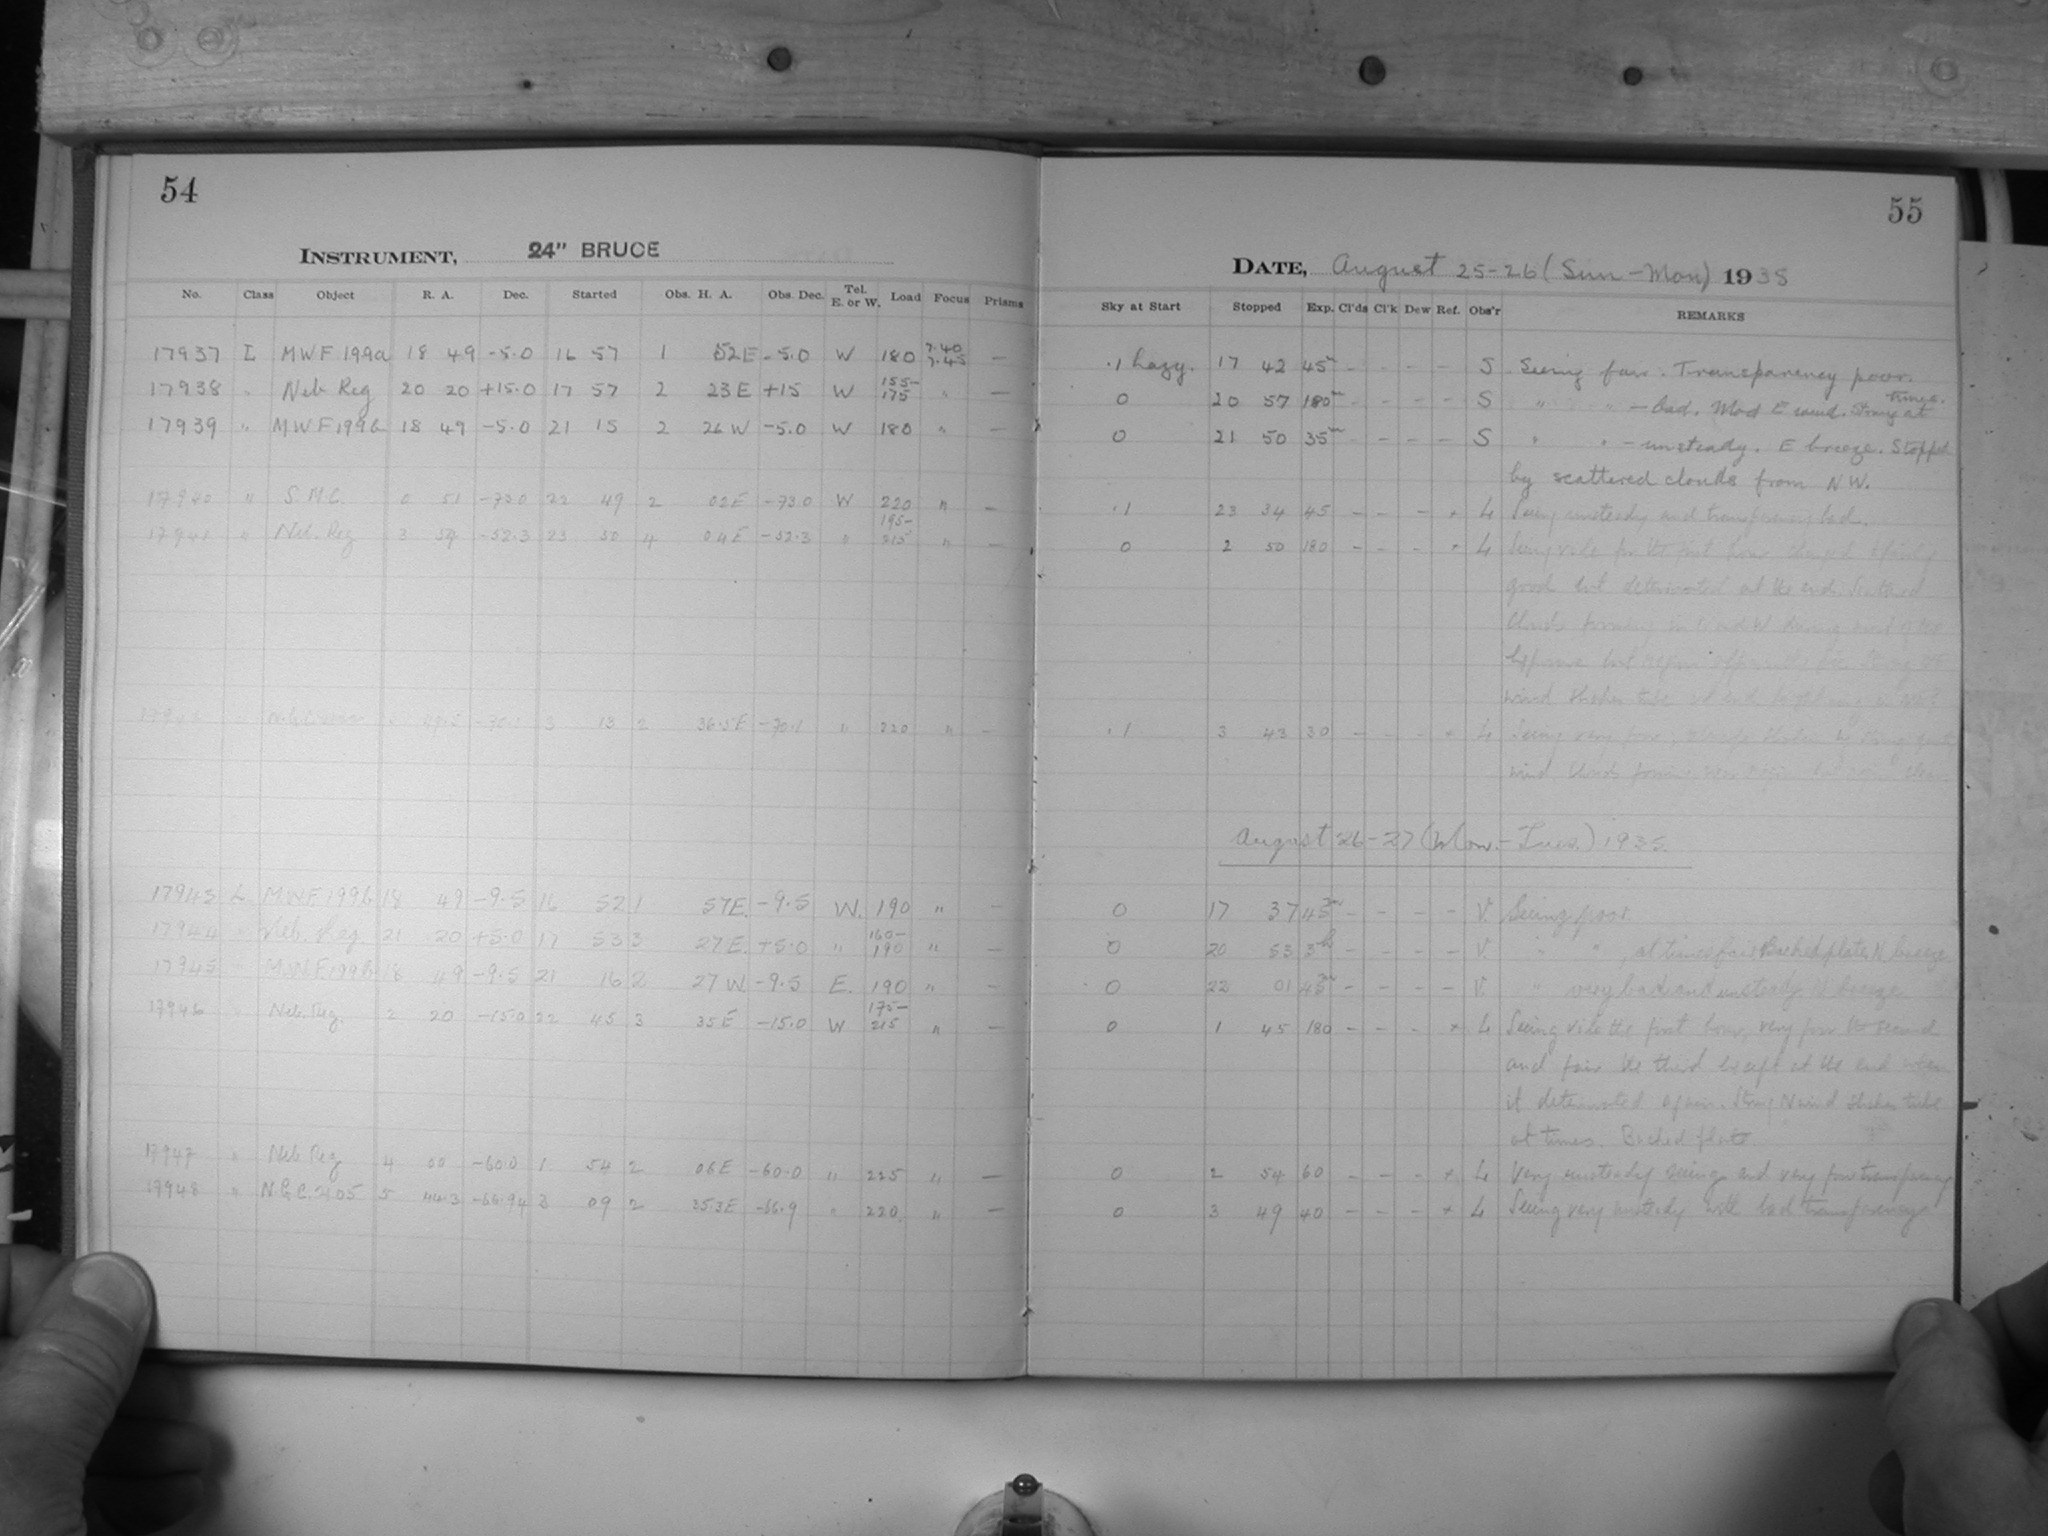 54
INSTRUMENT, 24" BRUCE
No. Class Object R. A. Dec. Started Obs. H. A. Obs. Dec. Tel. E. or W. Load Focus Prisms
17937 L MWF 199a 18 49 -5.0 16 57 1 52E -5.0 W 180 7.40 7.45 —
17938 " Neb Reg 20 20 +15.0 17 57 2 23 E +15 W 155-175 " —
17939 " MWF 199b 18 49 -5.0 21 15 2 26 W -5.0 W 180 " —
17940 " S.M.C. 0 51 -73.0 22 49 2 02E -73.0 W 220 " —
17941 " Neb. Reg 3 54 -52.3 23 50 4 04E -52.3 " 195-215 " —
3 13 2 36.5E -70.1 " 220 " —
17943 L M.W.F 199b 18 49 -9.5 16 52 1 57E. -9.5 W. 190 " —
17944 Neb. Reg 21 20 +5.0 17 53 3 27E. +5.0 " 160-190 " —
17945 M.W.F 199b 18 49 -9.5 21 16 2 27 W. -9.5 E. 190 " —
17946 " Neb. Reg. 2 20 -15.0 22 45 3 35E -15.0 W 175-215 " —
17947 " Neb Reg 4 00 -60.0 1 54 2 06E -60.0 " 225 " —
17948 " N.G.C. 2105 5 44.3 -66.94 3 09 2 25.3E -66.9 " 220. " —
55
DATE, August 25-26 (Sun-Mon) 1935
Sky at Start Stopped Exp. Cl'ds Cl'k Dew Ref. Obs'r REMARKS
.1 hazy. 17 42 45m - - - - S Seeing fair. Transparency poor.
0 20 57 180m - - - - S " " - bad. Mod E wind. Strong at times.
0 21 50 35m - - - - S " " - unsteady. E breeze. Stopped
by scattered clouds from NW.
.1 23 34 45 - - - + L Seeing unsteady and transparency bad.
0 2 50 180 - - - + L Seeing vile for the first hour
good but deteriorated at the end. Scattered
Clouds forming in
wind shakes tube at end
.1 3 43 30 - - - + L Seeing very poor,
wind. Clouds forming
August 26-27 (Mon.-Tues.) 1935.
0 17 37 45m - - - - V. Seeing poor.
0 20 53 3h - - - - V. " " , at times fair. Backed plate. N. breeze
0 22 01 45m - - - - V. " very bad and unsteady. N. breeze
0 1 45 180 - - - + L Seeing vile the first hour, very poor the second
and fair the third except at the end when
it deteriorated again. Strong N wind shakes tube
at times. Backed plate.
0 2 54 60 - - - + L Very unsteady seeing and very poor transparency
0 3 49 40 - - - + L Seeing very unsteady with bad transparency